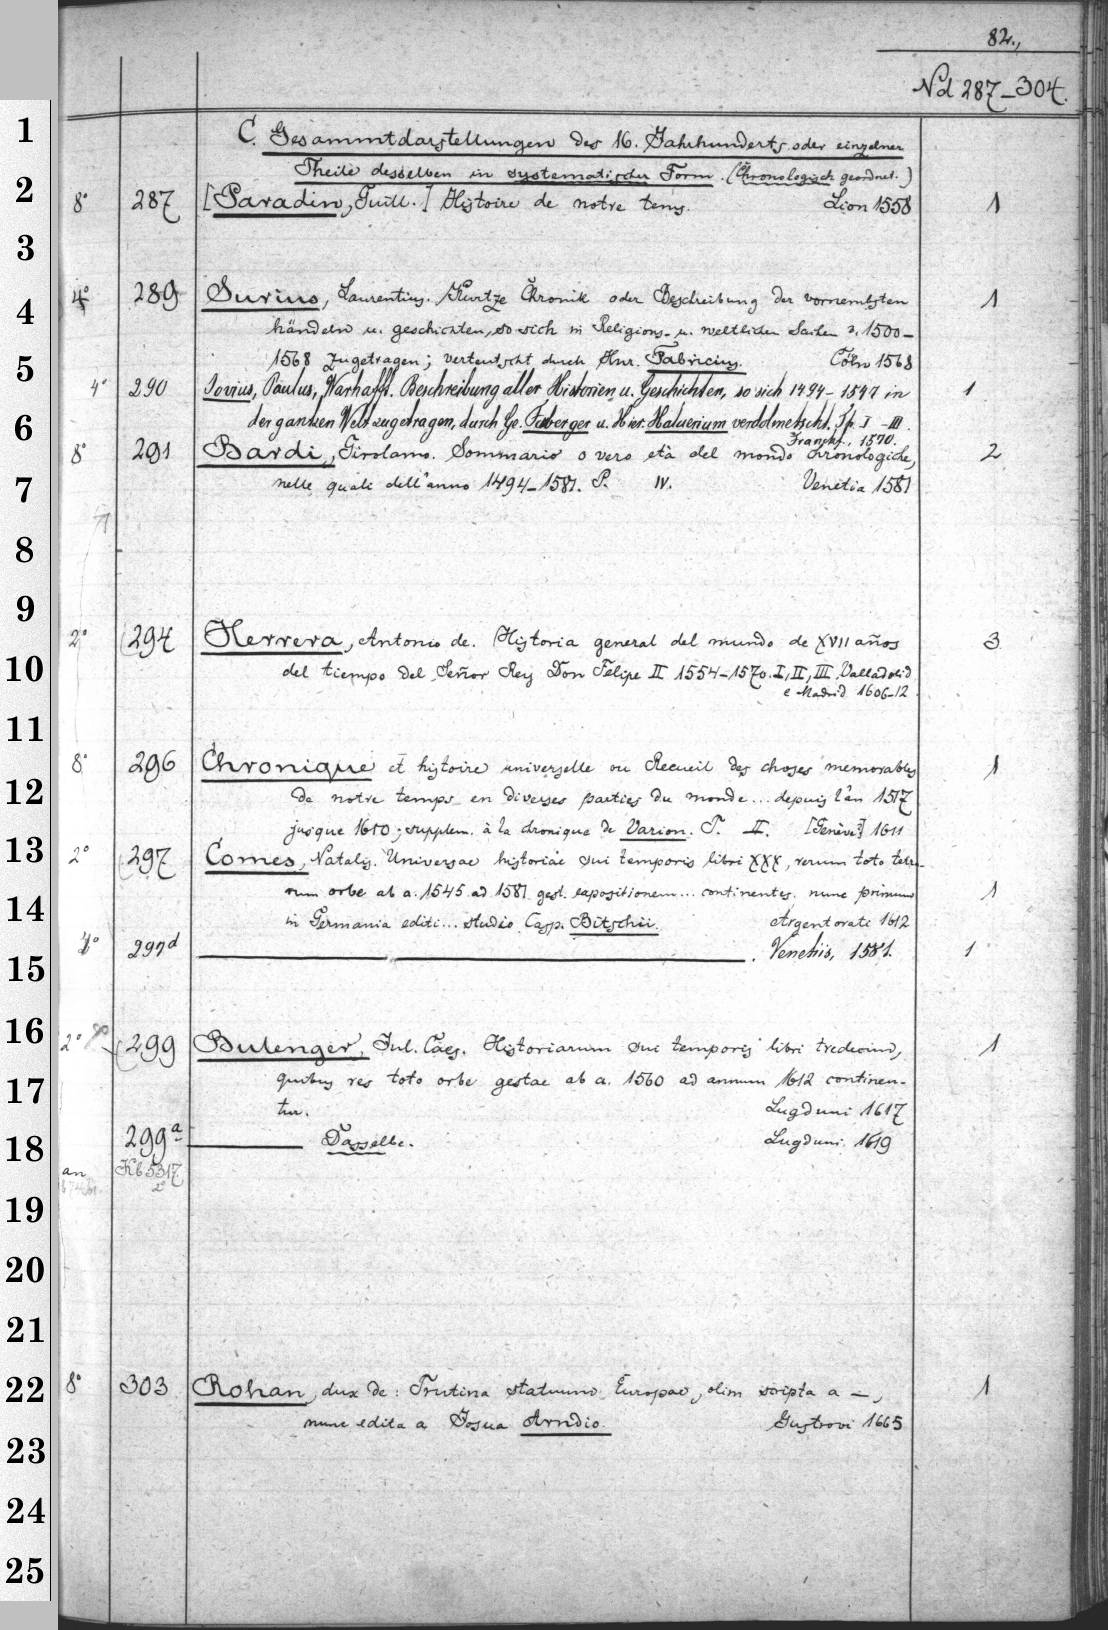 82.,
Nd 287-304.
C. Gesammtdarstellungen des 16. Jahrhunderts oder einzelner
Theile desselben in systematischer Form. (Chronologisch geordnet.)
8° 287 [Paradin, Guill.] Histoire de notre tems. Lion 1558 1
4° 289 Surius, Laurentius. Kurtze Chronik oder Beschreibung der vornembsten 1
händeln u. geschichten, so sich in Religions- u. weltlichen Sachen v. 1500-
1568 zugetragen; vertentscht durch Hnr. Fabricius. Cöln 1568
4° 290 Jovius, Paulus, Warhafft. Beschreibung aller Historien u. Geschichten, so sich 1494-1547 in 1
der gantzen Welt zugetragen, durch Ge. Forberger u. Hier. Haluerium verdolmetscht. Tp. I-III.
Frankf., 1570.
8° 291 Bardi, Girolamo. Sommario o vero età del mondo chronologiche, 2
nelle quali dell'anno 1494-1581. P. IV. Venetia 1581
2° 294 Herrera, Antonio de. Historia general del mundo de XVII años 3
del tiempo del Señor Rey Don Felipe II 1554-1570. I, II, III. Valladolid
e Madrid 1606-12
8° 296 Chronique et histoire universelle ou Recueil des choses memorables 1
de notre temps en diverses parties du monde... depuis l'an 1517
jusque 1610; supplem. à la chronique de Varion. T. II. [Genève?] 1611
2° 297 Comes, Natalis. Universae historiae sui temporis libri XXX, rerum toto terra-
rum orbe ab a. 1545 ad 1581 gest. expositionem... continentes. nunc primum 1
in Germania editi... studio Casp. Bitschii. Argentorati 1612
4° 297d . Venetiis, 1581. 1
2° 299 Bulenger, Jul. Caes. Historiarum sui temporis libri tredecim, 1
quibus res toto orbe gestae ab a. 1560 ad annum 1612 continen-
tur. Lugduni 1617
299a Dasselbe. Lugduni 1619
Kb 5317
2°
an
8° 303 Rohan, dux de: Trutina statuum Europae, olim scripta a —, 1
nunc edita a Josua Arndio. Gustrovi 1665
1
2
3
4
5
6
7
8
9
10
11
12
13
14
15
16
17
18
19
20
21
22
23
24
25